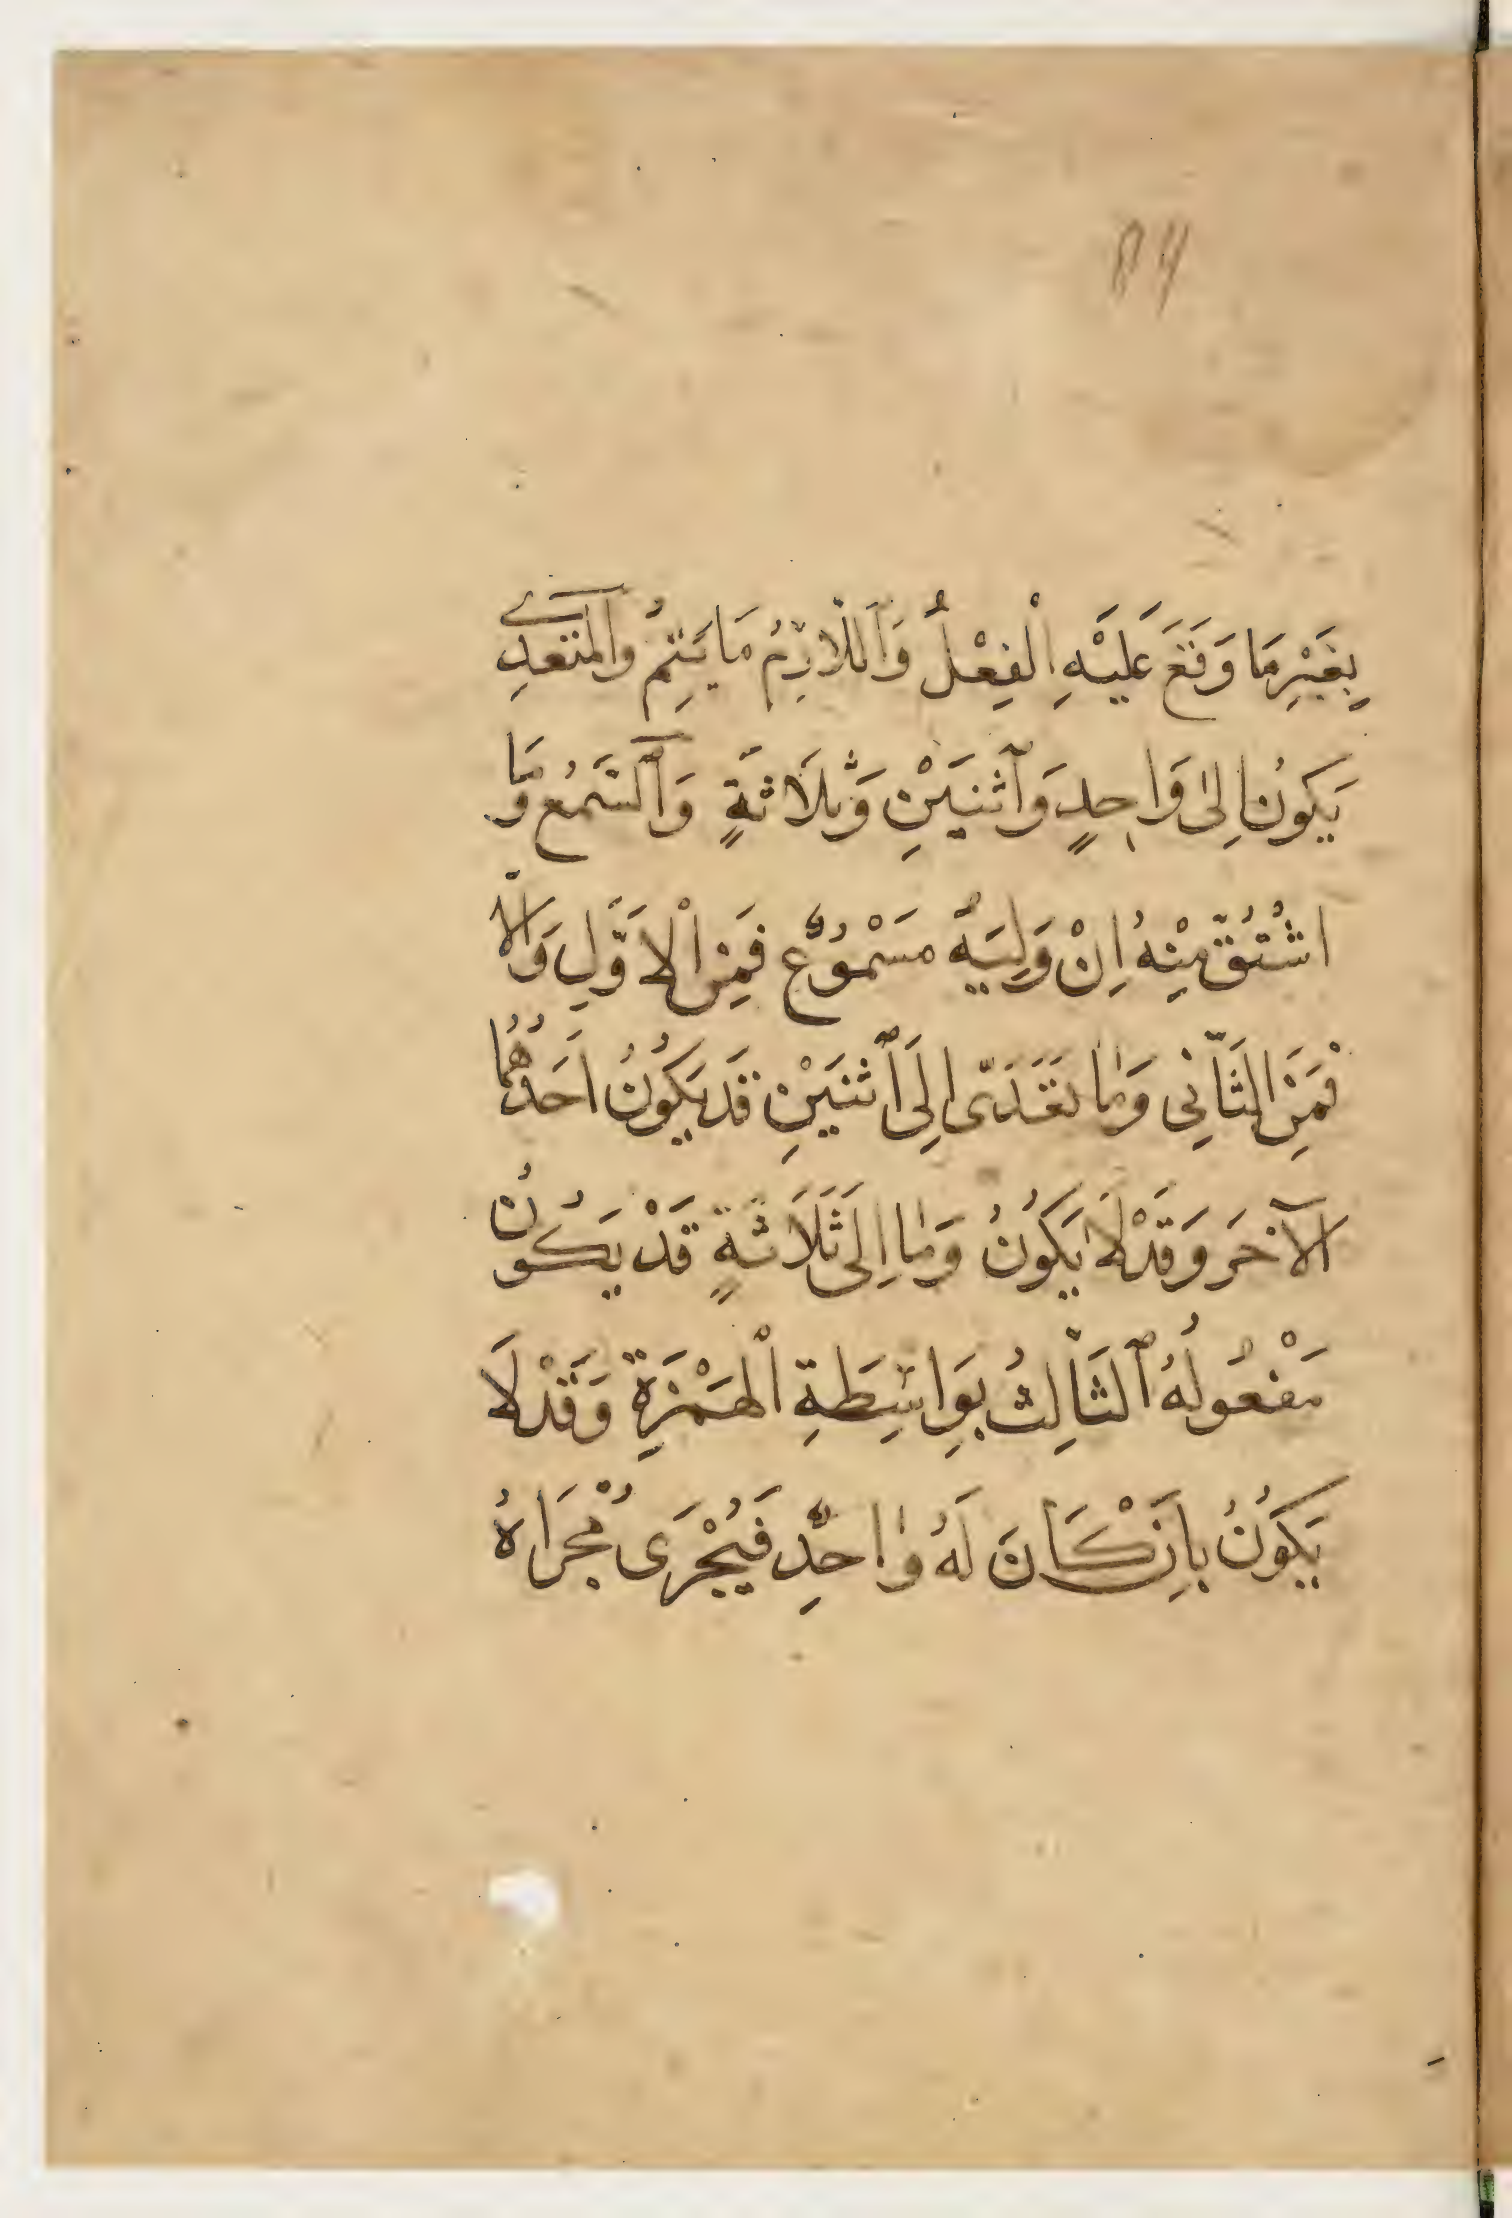 84
بِغَيْرِ مَا وَقَعَ عَلَيْهِ الْفِعْلُ وَاَللَّازِمُ مَا يَتِمُّ وَالْمُتَعَدِّي
يَكُونُ اِلىٰ وَاحِدٍ وَاثْنَيْنِ وَثَلَاثَةٍ وَالسَّمْعُ وَمَا
اشْتُقَّ مِنْهُ اِنْ وَلِيَهُ مَسْمُوعٌ فَمِنَ الْاَوَّلِ وَاِلَّا
فَمِنَ الثَّانِي وَمَا تَعَدَّى اِلَى اثْنَيْنِ قَدْ يَكُونُ اَحَدُهُمَا
الْآخَرَ وَقَدْ لَا يَكُونُ وَمَا اِلَى ثَلَاثَةٍ قَدْ يَكُونُ
مَفْعُولُهُ الثَّالِثُ بِوَاسِطَةِ الْهَمْزَةِ وَقَدْ لَا
يَكُونُ بِاَنْ كَانَ لَهُ وَاحِدٌ فَيُجْرَى مُجْرَاهُ